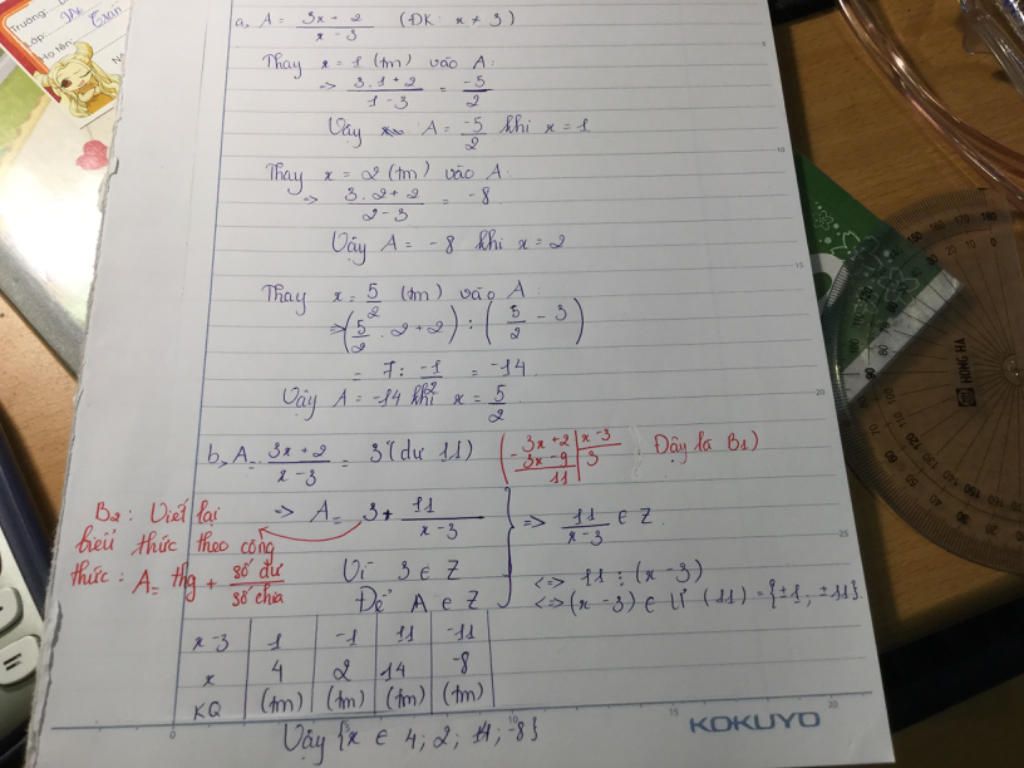 Trường:
Lớp:
Họ tên:
Trần
a, A = 3x + 2 / x - 3 (ĐK: x ≠ 3)
Thay x = 1 (tm) vào A:
=> 3.1+2 / 1-3 = -5/2
Vậy A = -5/2 khi x = 1
Thay x = 2 (tm) vào A:
=> 3.2+2 / 2-3 = -8
Vậy A = -8 khi x = 2
Thay x = 5/2 (tm) vào A:
=> (5/2 . 2 + 2) : (5/2 - 3)
= 7 : -1/2 = -14
Vậy A = -14 khi x = 5/2
b, A = 3x + 2 / x - 3 = 3 (dư 11) ( - 3x+2 | x-3
3x-9 | 3
11 Đây là B1)
B2: Viết lại
biểu thức theo công
thức: A = thg + số dư / số chia
=> A = 3 + 11 / x - 3
Vì 3 ∈ Z
Để A ∈ Z
} => 11 / x - 3 ∈ Z
<=> 11 ⋮ (x - 3)
<=> (x - 3) ∈ Ư (11) = {±1; ±11}
x-3 | 1 | -1 | 11 | -11
x | 4 | 2 | 14 | -8
KQ | (tm) | (tm) | (tm) | (tm)
Vậy {x ∈ 4; 2; 14; -8}
KOKUYO
HONG HA
5
10
15
20
25
0
10
15
20